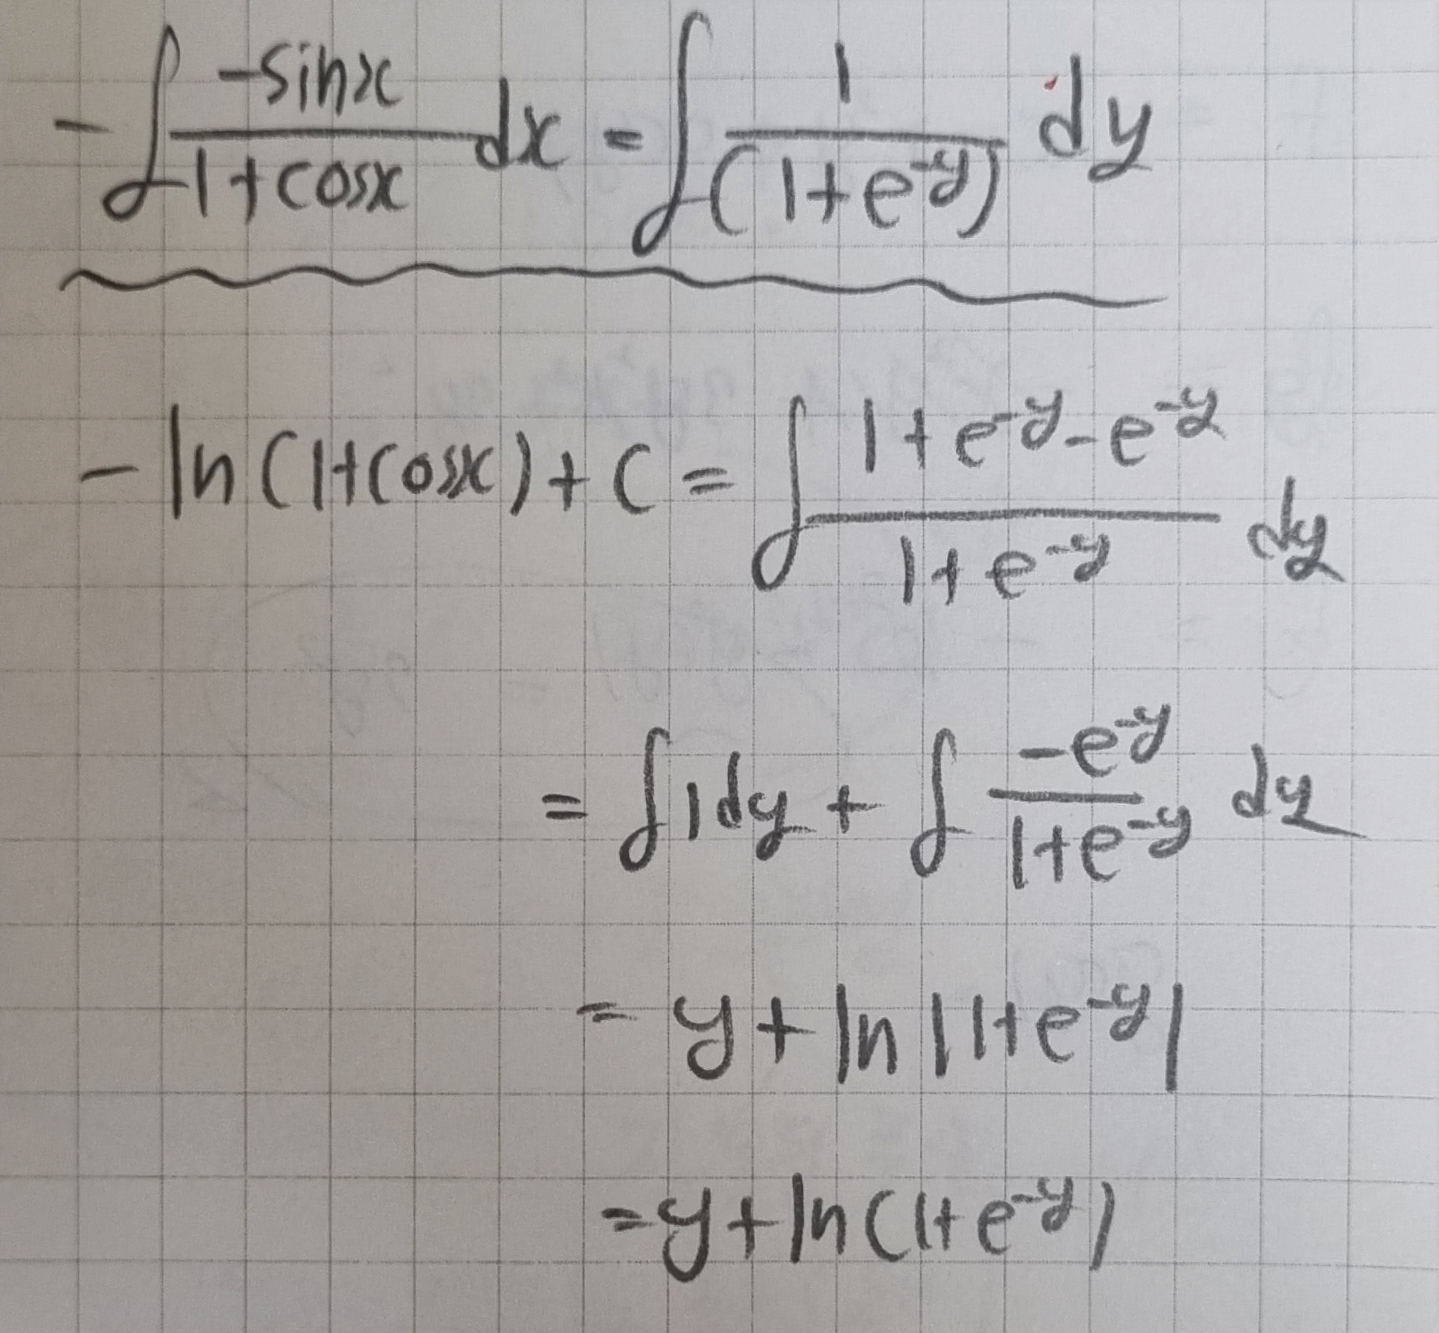 -∫ (-sinx)/(1+cosx) dx = ∫ 1/(1+e^-y) dy
-ln(1+cosx)+C = ∫ (1+e^-y-e^-y)/(1+e^-y) dy
= ∫1dy + ∫ (-e^-y)/(1+e^-y) dy
= y+ln|1+e^-y|
=y+ln(1+e^-y)